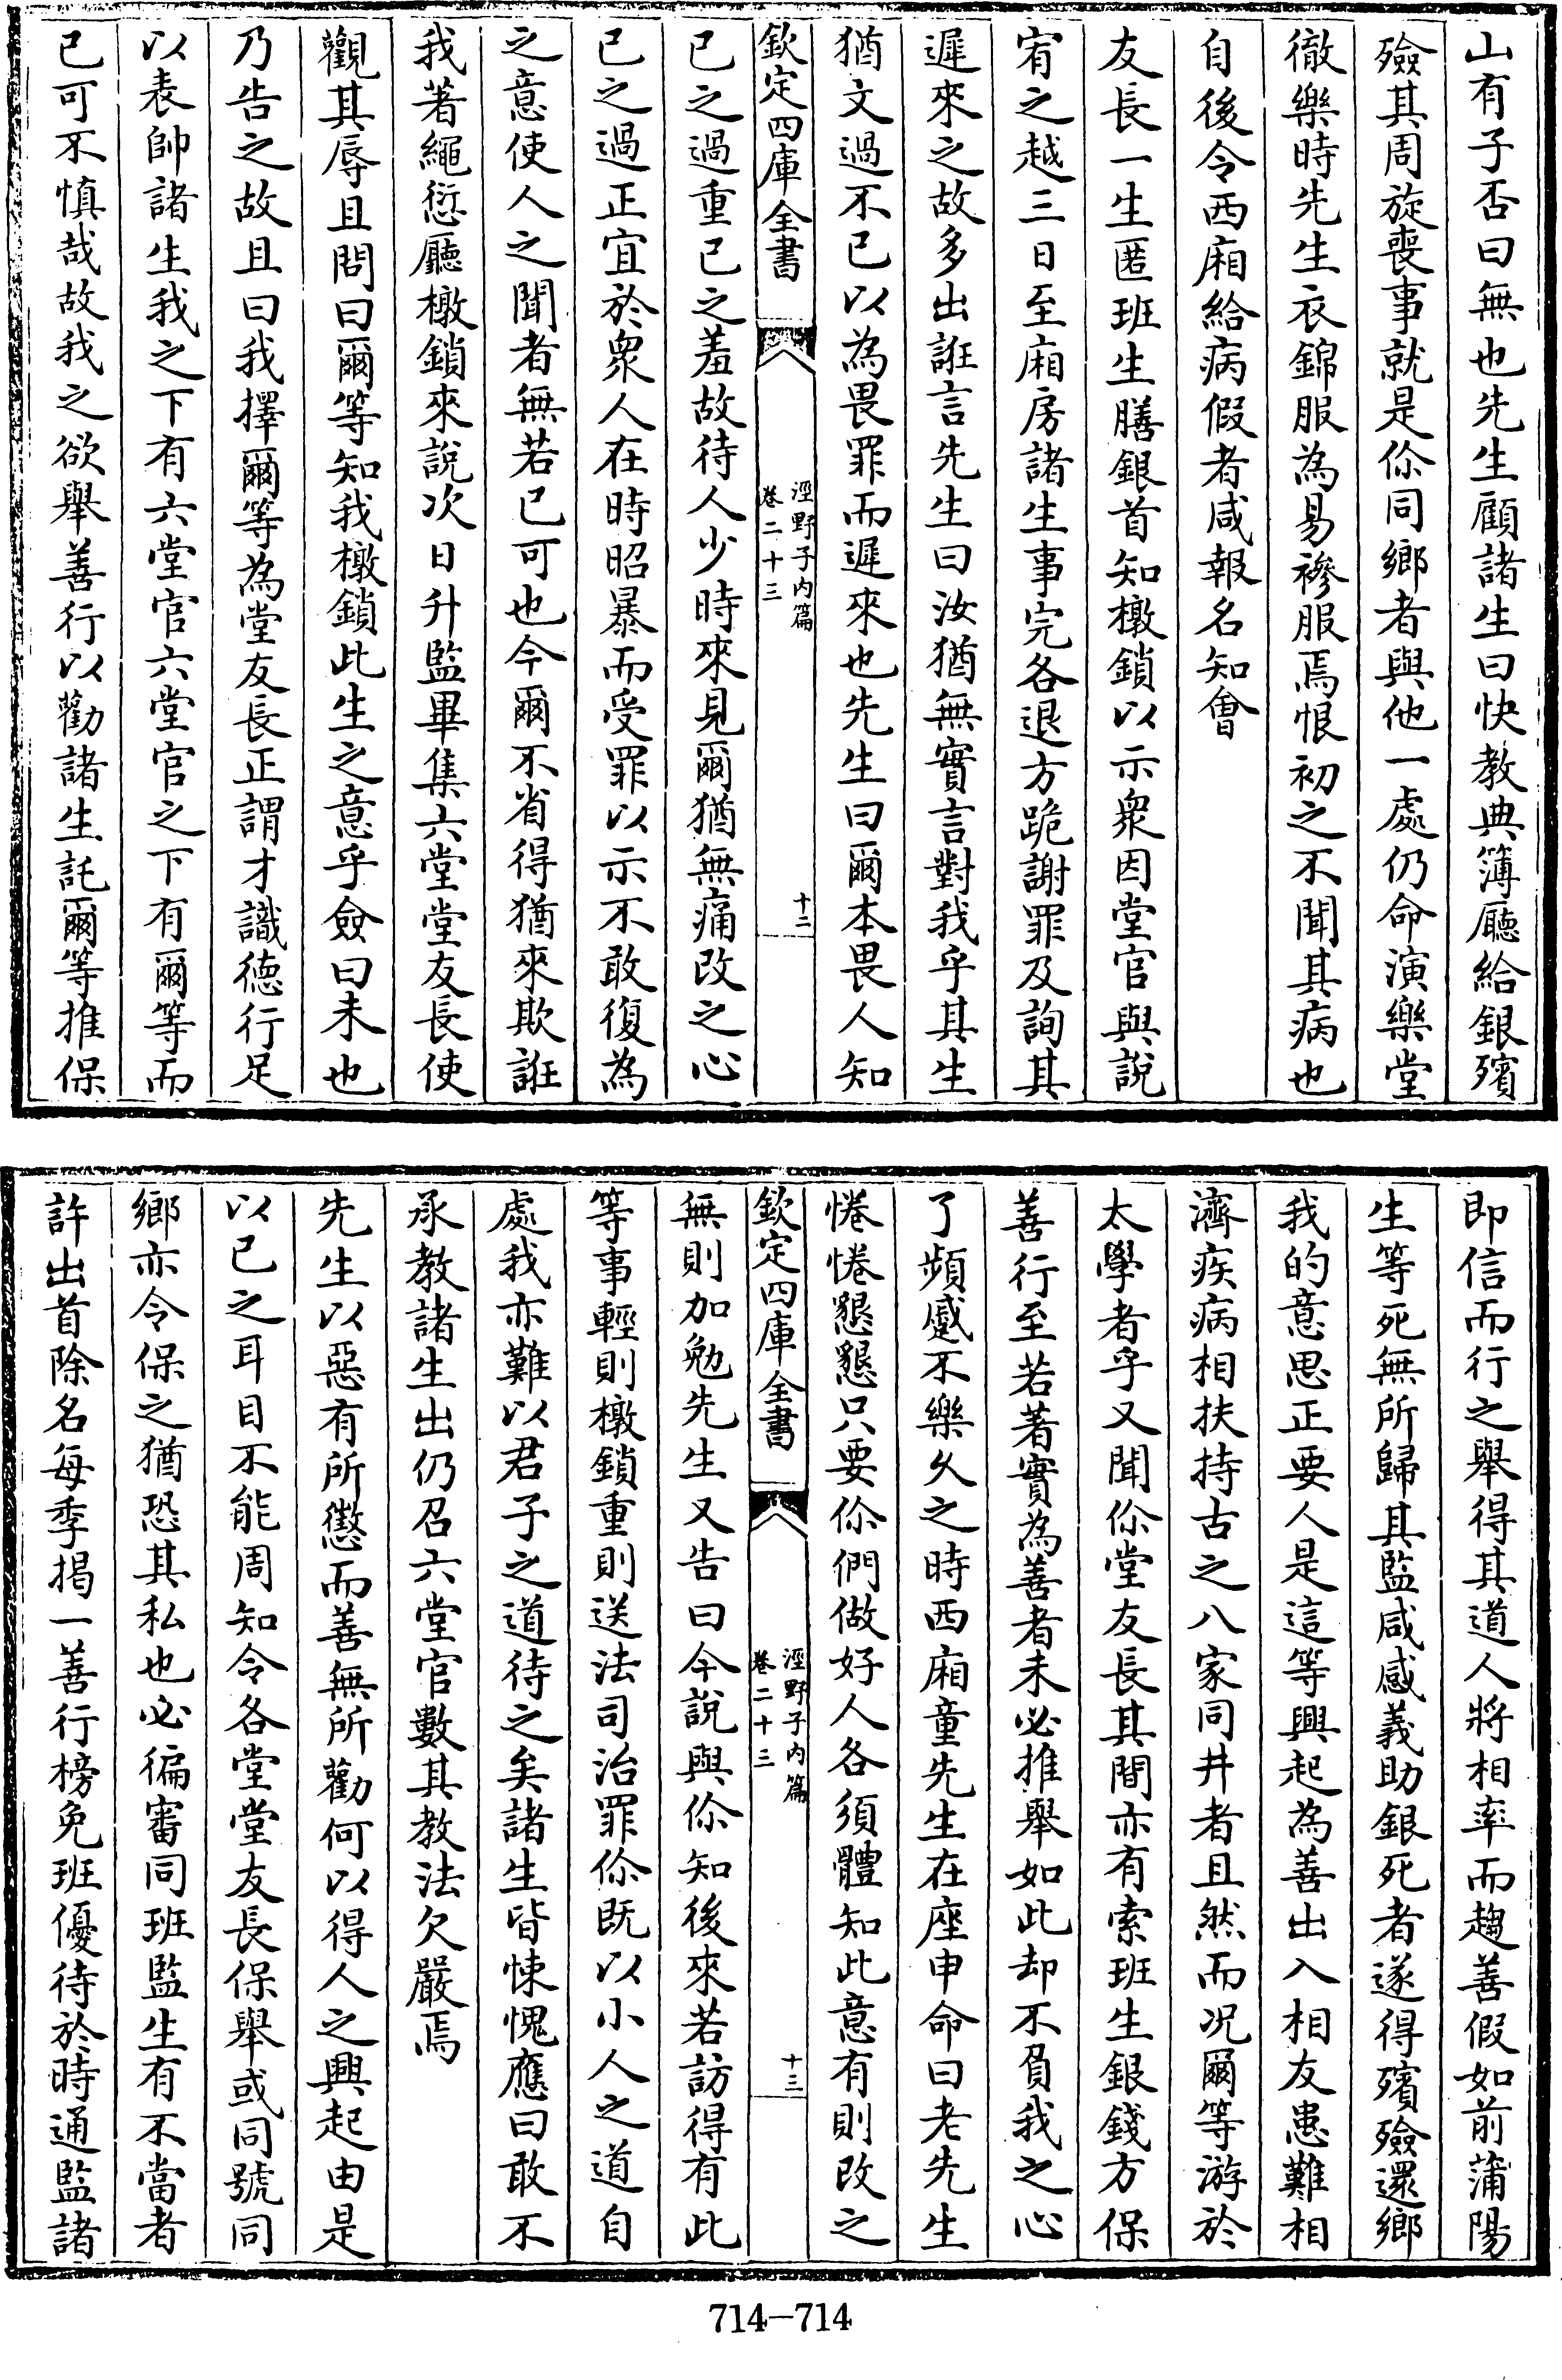 山有子否曰無也先生顧諸生曰快教典簿廳給銀殯
殮其周旋喪事就是你同鄉者與他一處仍命演樂堂
徹樂時先生衣錦服為易襂服焉恨初之不聞其病也
自後令西廂給病假者咸報名知會
友長一生匿班生膳銀首知橔鎖以示衆因堂官與說
宥之越三日至廂房諸生事完各退方跪謝罪及詢其
遲來之故多出誑言先生曰汝猶無實言對我乎其生
猶文過不已以為畏罪而遲來也先生曰爾本畏人知
欽定四庫全書
涇野子內篇
卷二十三
十二
已之過重已之羞故待人少時來見爾猶無痛改之心
已之過正宜於衆人在時昭暴而受罪以示不敢復為
之意使人之聞者無若已可也今爾不省得猶來欺誑
我著繩愆廳橔鎖來說次日升監畢集六堂堂友長使
觀其辱且問曰爾等知我橔鎖此生之意乎僉曰未也
乃告之故且曰我擇爾等為堂友長正謂才識德行足
以表帥諸生我之下有六堂官六堂官之下有爾等而
已可不慎哉故我之欲舉善行以勸諸生託爾等推保
即信而行之舉得其道人將相率而趨善假如前蒲陽
生等死無所歸其監咸感義助銀死者遂得殯殮還鄉
我的意思正要人是這等興起為善出入相友患難相
濟疾病相扶持古之八家同井者且然而况爾等游於
太學者乎又聞你堂友長其間亦有索班生銀錢方保
善行至若著實為善者未必推舉如此却不負我之心
了頻蹙不樂乆之時西廂童先生在座申命曰老先生
惓惓懇懇只要你們做好人各須體知此意有則改之
欽定四庫全書
涇野子內篇
卷二十三
十三
無則加勉先生又告曰今說與你知後來若訪得有此
等事輕則橔鎖重則送法司治罪你既以小人之道自
處我亦難以君子之道待之矣諸生皆悚愧應曰敢不
承教諸生出仍召六堂官數其教法欠嚴焉
先生以惡有所懲而善無所勸何以得人之興起由是
以已之耳目不能周知令各堂堂友長保舉或同號同
鄉亦令保之猶恐其私也必徧審同班監生有不當者
許出首除名每季揭一善行榜免班優待於時通監諸
714—714